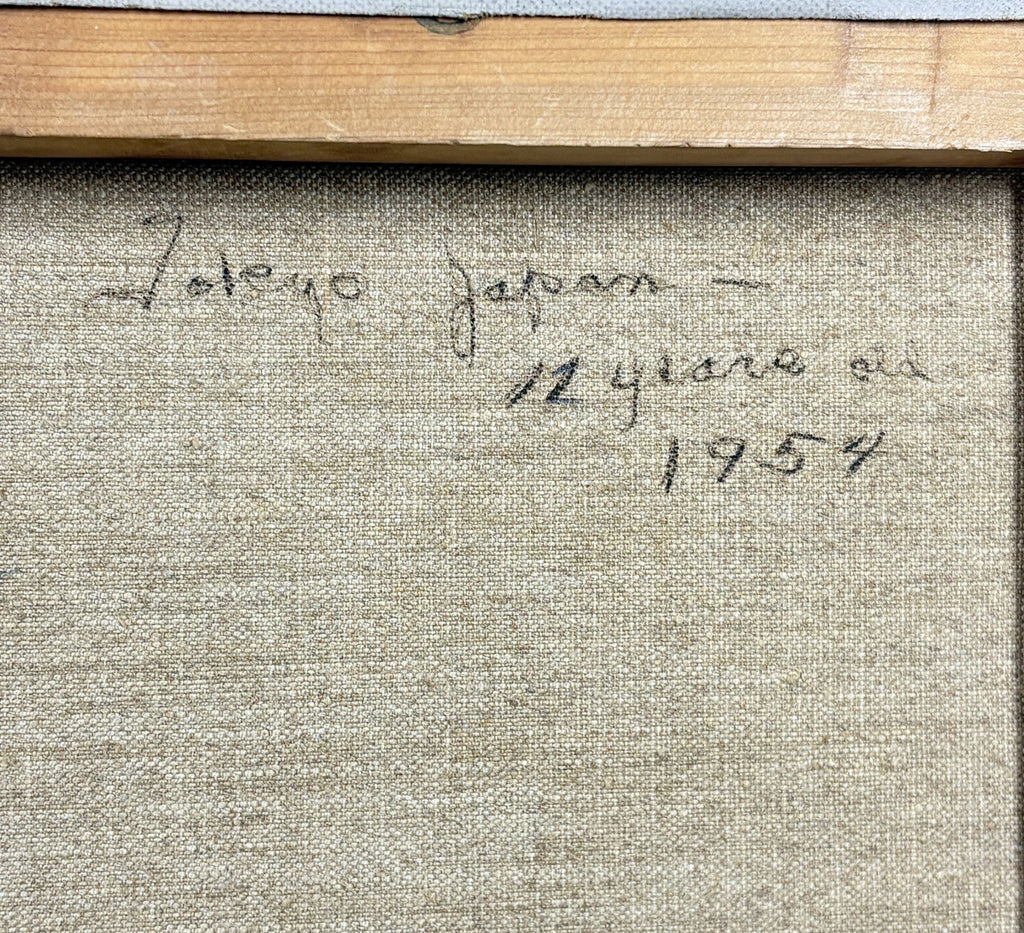 Tokyo Japan –
12 years old
1954